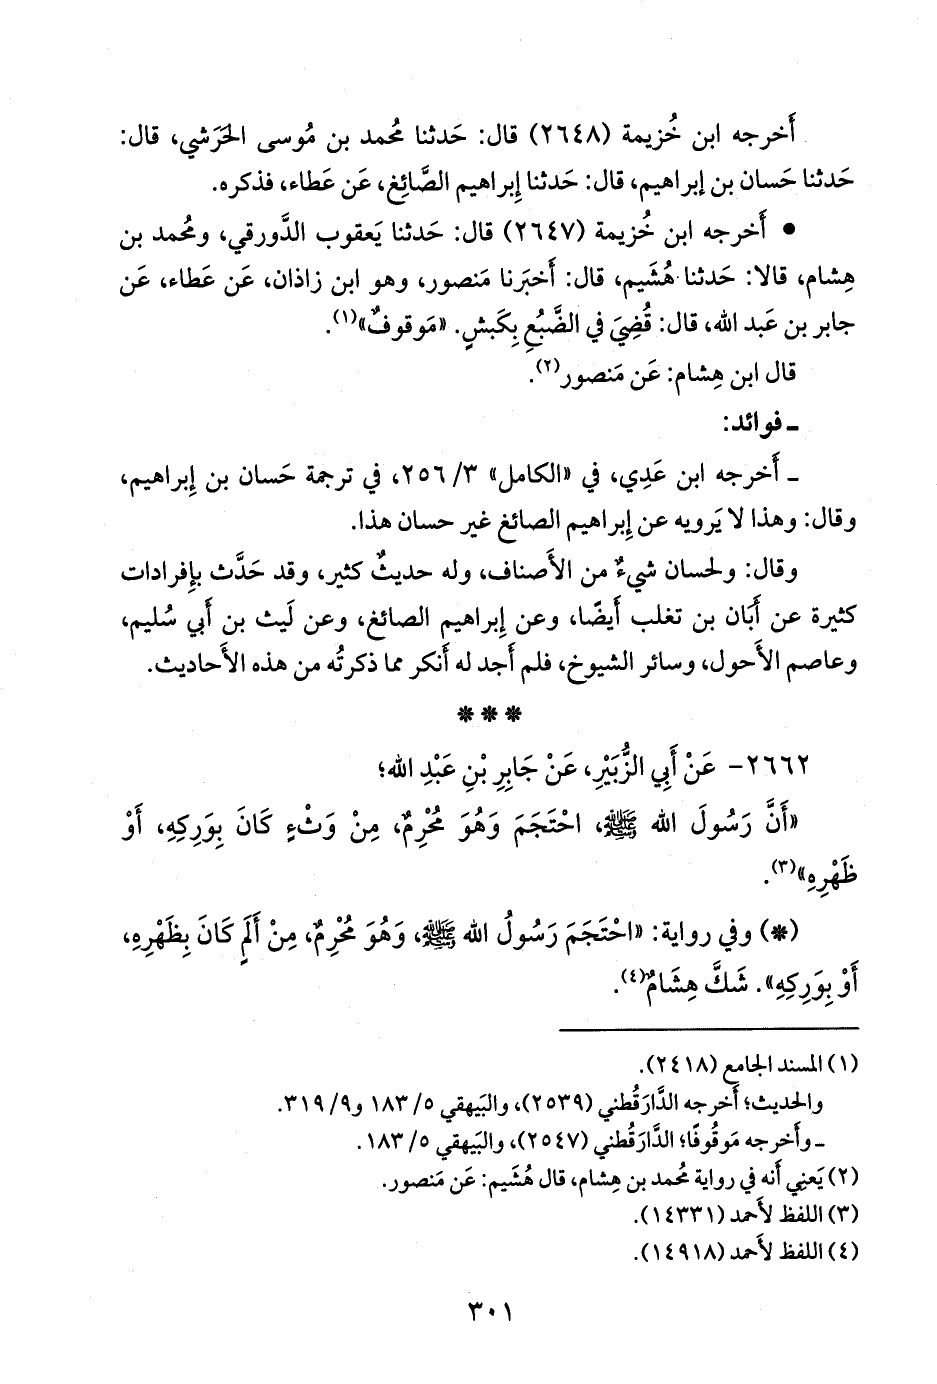 أَخرجه ابن خُزيمة (٢٦٤٨) قال: حَدثنا مُحمد بن مُوسى الحَرَشي، قال:
حَدثنا حَسان بن إبراهيم، قال: حَدثنا إِبراهيم الصَّائِغ، عَن عَطاء، فذكره.
• أَخرجه ابن خُزيمة (٢٦٤٧) قال: حَدثنا يَعقوب الدَّورقي، ومُحمد بن
هِشام، قالا: حَدثنا هُشَيم، قال: أَخبَرنا مَنصور، وهو ابن زاذان، عَن عَطاء، عَن
جابر بن عَبد الله، قال: قُضِيَ في الضَّبُعِ بِكَبشٍ. «مَوقوفٌ»(١).
قال ابن هِشام: عَن مَنصور(٢).
ـ فوائد:
ـ أَخرجه ابن عَدِي، في «الكامل» ٣/ ٢٥٦، في ترجمة حَسان بن إِبراهيم،
وقال: وهذا لا يَرويه عن إِبراهيم الصائغ غير حسان هذا.
وقال: ولحسان شيءٌ من الأَصناف، وله حديثٌ كثير، وقد حَدَّث بإِفرادات
كثيرة عن أَبَان بن تغلب أَيضًا، وعن إِبراهيم الصائغ، وعن لَيث بن أَبي سُليم،
وعاصم الأَحول، وسائر الشيوخ، فلم أَجد له أَنكر مما ذكرتُه من هذه الأَحاديث.
* * *
٢٦٦٢- عَنْ أَبِي الزُّبَيْرِ، عَنْ جَابِرِ بْنِ عَبْدِ الله؛
«أَنَّ رَسُولَ الله ﷺ، احْتَجَمَ وَهُوَ مُحْرِمٌ، مِنْ وَثْءٍ كَانَ بِوَرِكِهِ، أَوْ
ظَهْرِهِ»(٣).
(*) وفي رواية: «احْتَجَمَ رَسُولُ الله ﷺ، وَهُوَ مُحْرِمٌ، مِنْ أَلَمٍ كَانَ بِظَهْرِهِ،
أَوْ بِوَرِكِهِ». شَكَّ هِشَامٌ(٤).
(١) المسند الجامع (٢٤١٨).
والحديث؛ أَخرجه الدَّارَقُطني (٢٥٣٩)، والبَيهقي ٥/ ١٨٣ و٩/ ٣١٩.
ـ وأَخرجه مَوقُوفًا؛ الدَّارَقُطني (٢٥٤٧)، والبَيهقي ٥/ ١٨٣.
(٢) يَعنِي أَنه في رواية مُحمد بن هِشام، قال هُشَيم: عَن مَنصور.
(٣) اللفظ لأَحمد (١٤٣٣١).
(٤) اللفظ لأَحمد (١٤٩١٨).
٣٠١